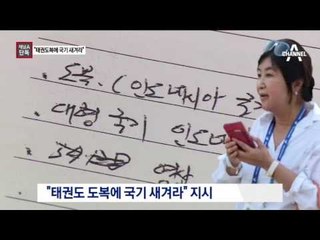 채널A 단독
"태권도복에 국기 새겨라"
채널A
· 도복. (인도네시아 국
· 대형 국기 인도네
"태권도 도복에 국기 새겨라" 지시